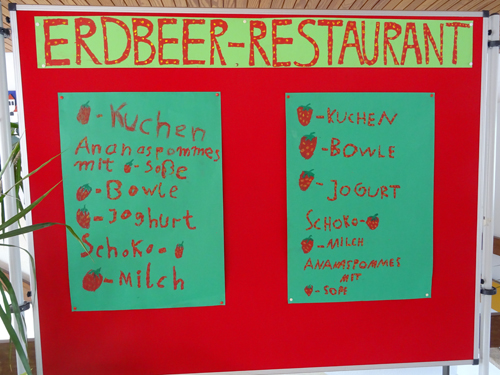 ERDBEER-RESTAURANT
-Kuchen
Ananaspommes
mit -Soße
-Bowle
-Joghurt
Schoko-
-Milch
-KUCHEN
-BOWLE
-JOGURT
SCHOKO-
-MILCH
ANANASPOMMES
MIT
-SOßE